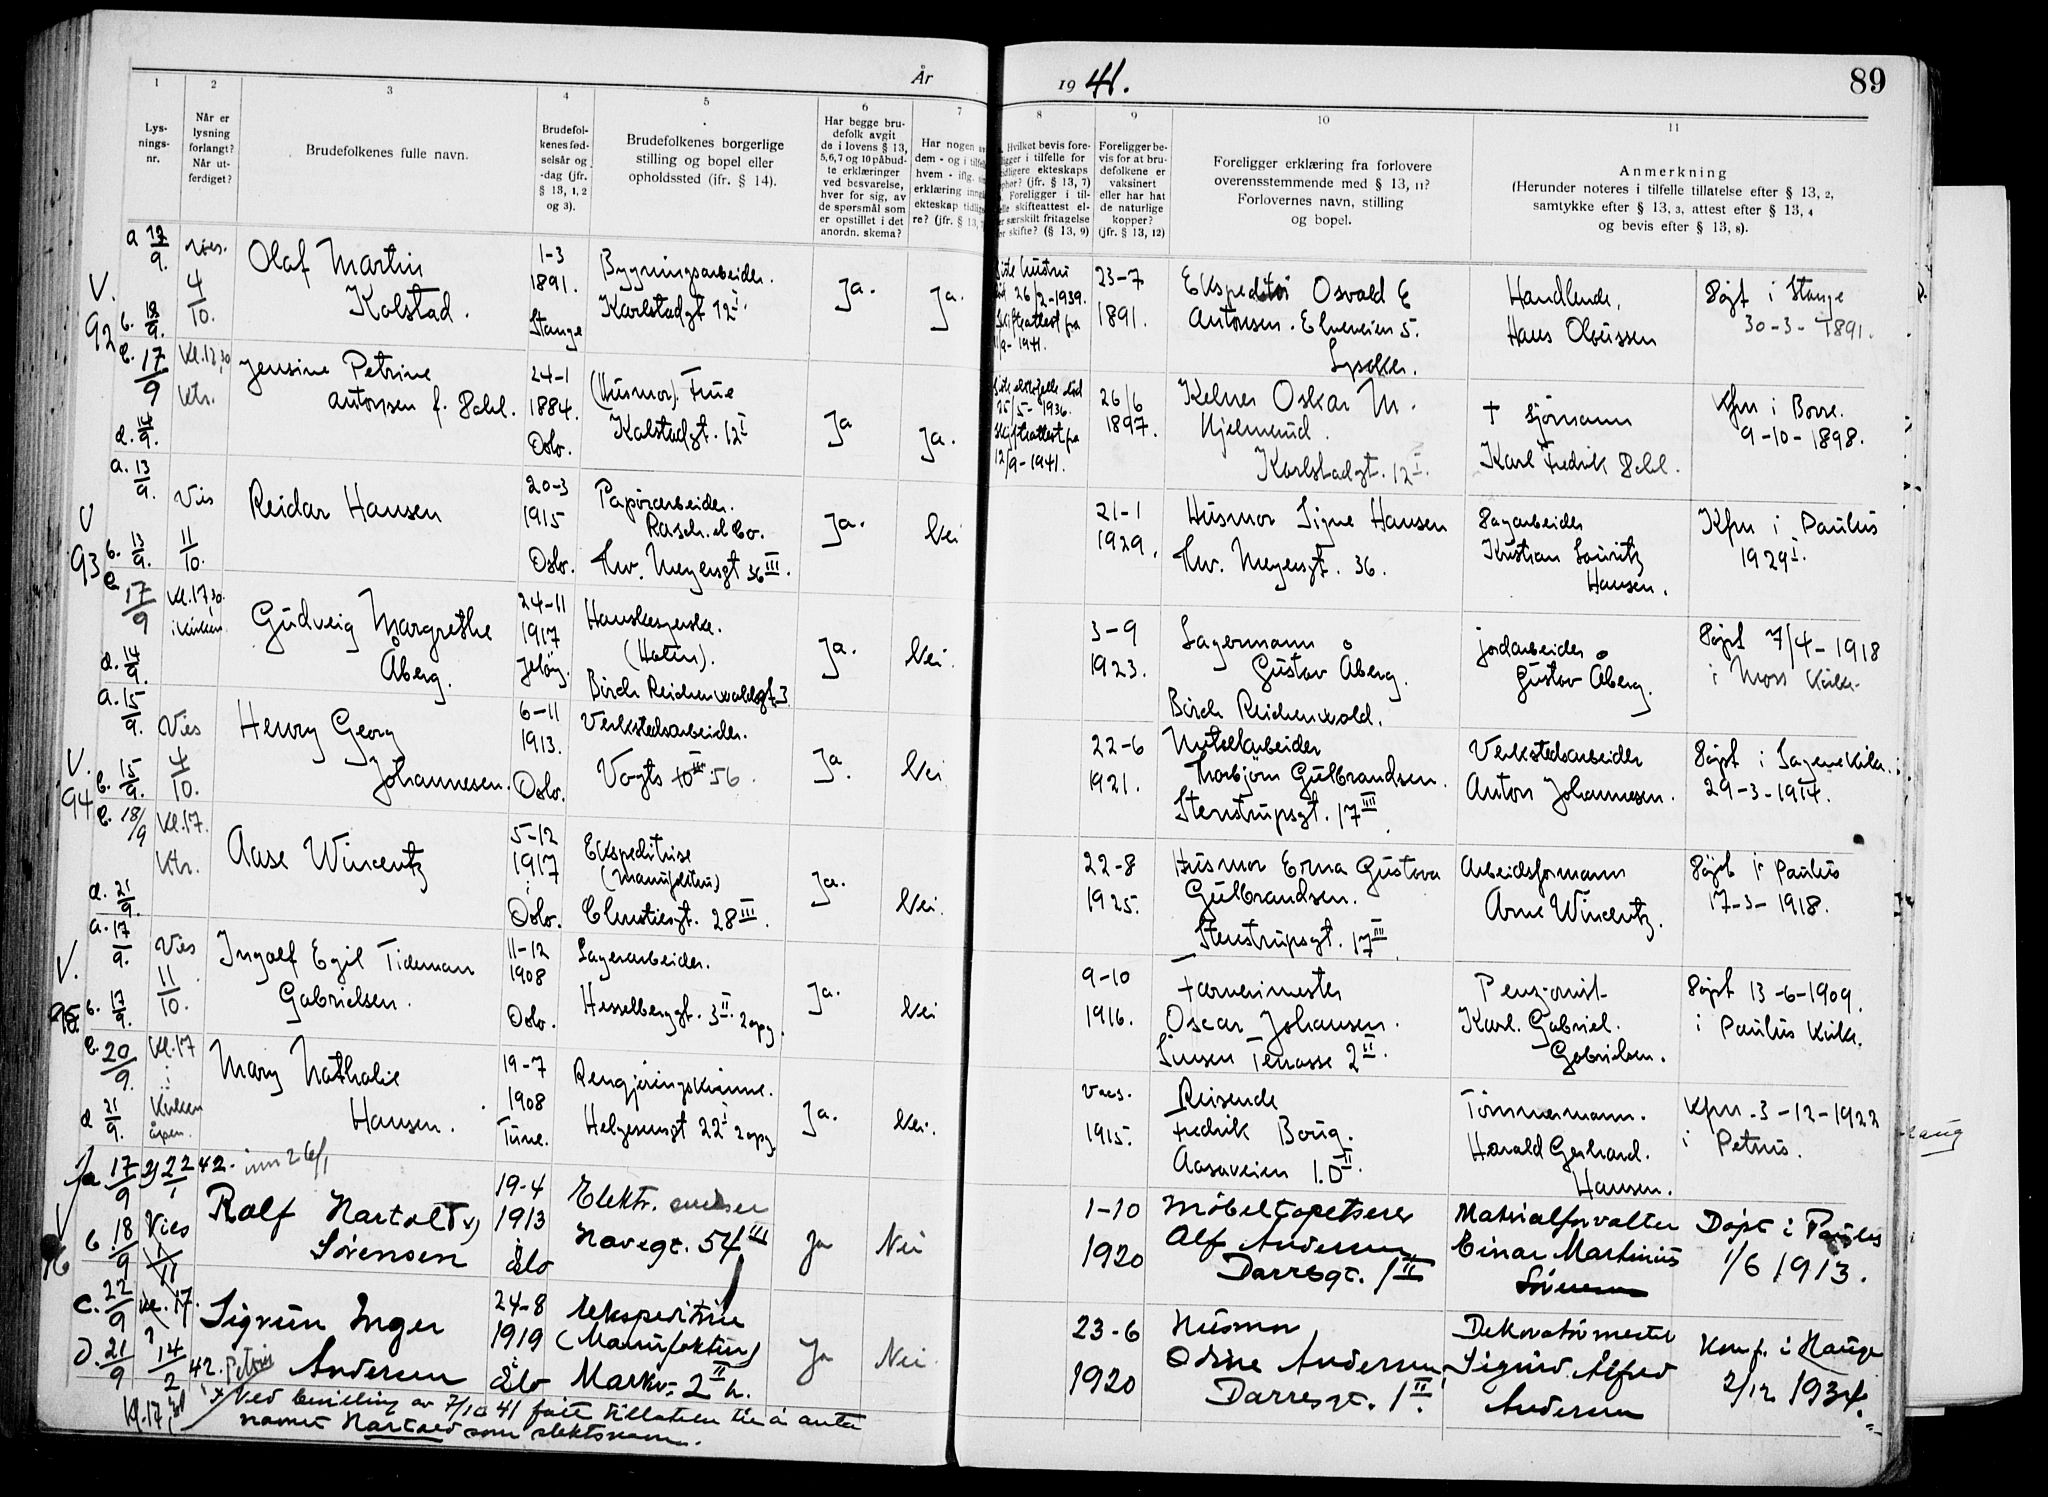 År 1941.
89
1
Lys-
nings-
nr.
2
Når er
lysning
forlangt?
Når ut-
ferdiget?
3
Brudefolkenes fulle navn.
4
Brudefol-
kenes fød-
selsår og
-dag (jfr.
§ 13, 1, 2
og 3).
5
Brudefolkenes borgerlige
stilling og bopel eller
opholdssted (jfr. § 14).
6
Har begge bru-
defolk avgit
de i lovens § 13,
5,6,7 og 10 påbud-
te erklæringer
ved besvarelse,
hver for sig, av
de spørsmål som
er opstillet i det
anordn. skema?
7
Har nogen
dem - og i
hvem - iflg.
erklæring
ekteskap
re? (jfr. § 13,
8
Hvilket bevis fore-
ligger i tilfelle for
ekteskaps
(jfr. § 13, 7)
Foreligger i til-
skifteattest el-
særskilt fritagelse
skifte? (§ 13, 9)
9
Foreligger be-
vis for at bru-
defolkene er
vaksinert
eller har hat
de naturlige
kopper?
(jfr. § 13, 12)
10
Foreligger erklæring fra forlovere
overensstemmende med § 13, 11?
Forlovernes navn, stilling
og bopel.
11
Anmerkning
(Herunder noteres i tilfelle tillatelse efter § 13, 2,
samtykke efter § 13, 3, attest efter § 13, 4
og bevis efter § 13, 8).
V.
92
4/10.
Olaf Martin
Kolstad.
1-3
1891.
Stange
Bygningsarbeider.
Karlstadgt 12 I.
Ja.
Ja.
26/2-1939.
1941.
23-7
1891.
Ekspeditør Osvald E
Antonsen. Elveveien 5.
Lysaker.
Handlende,
Hans Olaussen
Døpt i Stange
30-3-1891.
17/9
Kl. 17,30
Ktr.
Jensine Petrine
Antonsen f. Dahl.
24-1
1884.
Oslo.
(Husmor). Frue
Kalstadgt. 12 I
Ja
Ja.
25/5-1936.
Skifteattest fra
12/9-1941.
26/6
1897.
Kelner Oskar M.
Karlstadgt. 12 I.
† sjømann
Karl Fredrik Dahl.
Kfm i Borre.
9-10-1898.
V
93
a. 13/9.
b. 13/9.
Vies
11/10.
Reidar Hansen
20-3
1915
Oslo.
Papirarbeider.
Rasch. et Co.
Thv. Meyersgt 36 III.
Ja.
Nei
21-1
1929.
Husmor Signe Hansen
Thv. Meyersgt. 36.
Sagarbeider
Kristian Lauritz
Hansen.
Kfm i Paulus
1929 I.
17/9
d. 14/9.
Kl. 17 30.
i kirken
Gudveig Margrethe
Åberg.
24-11
1917
Jeløy.
Hanskesyerske.
Birch Reichenwaldsgt. 3
Ja.
Nei.
3-9
1923.
Lagermann
Gustav Åberg.
Birch Reichenwald.
jordarbeider
Gustav Åberg.
Døpt 7/4-1918
i Moss Kirke.
V.
94
a. 15/9.
b. 15/9.
Vies
4/10.
Henry Georg
Johannessen.
6-11
1913.
Oslo.
Verkstedsarbeider.
Vogts 56.
Ja.
Nei
22-6
1921.
Thorbjørn Gulbrandsen.
Stenstrupsgt. 17 III.
Verkstedsarbeider
Anton Johannessen.
Døpt i Sagene Kirke.
29-3-1914.
18/9
d. 21/9.
Kl. 17.
Ktr.
Aase Wincentz
5-12
1917
Oslo.
Ekspeditrise
(manufaktur)
Christiesgt. 28 III.
Ja.
Nei.
22-8
1925.
Husmor Erna Gustava
Gulbrandsen.
Stenstrupsgt. 17 III
Arbeidsformann
Arne Wincentz.
Døpt i Paulus
17-3-1918.
V.
95
a. 17/9.
b. 17/9.
Vies
11/10.
Ingolf Egil Tideman
Gabrielsen.
11-12
1908
Oslo.
Lagerarbeider.
Hesselbergsgt. 3 II. 2 opg.
Ja.
Nei
9-10
1916.
Farverimester
Oscar Johansen.
Sinsen Terrasse 2 II.
Pensjonist
Karl. Gabriel.
Gabrielsen.
Døpt 13-6-1909.
i Paulus Kirke.
20/9.
d 21/9.
Kl. 17
i
Kirken
åpen.
Mary Nathalie
Hansen.
19-7
1908
Tune.
Rengjøringskvinne.
Helgesensgt 22 I 2 opg.
Ja.
Nei.
vacs.
1915.
Reisende
Fredrik Borg.
Aasaveien 1.D II.
Tømmermann.
Harald Gerhard.
Hansen.
Kfm. 3-12-1922
i Petrus.
V
96
a 17/9
b 18/9
22/1 42.
Vies
Rolf Hartold x)
Sörensen
19-4
1913
Oslo
Elektr. sveiser
Havegt. 54 III
Ja
Nei
1-10
1920
Møbeltapetserer
Alf Andersen,
Darresgt. 1 II
Materialforvalter
Einar Martinius
Sörensen
Døpt i Paulus
1/6 1913.
c. 22/9
d. 21/9
kl. 17.
14/2 42. Petrus
Kl. 17
Sigrun Inger
Andersen
24-8
1919
Oslo
Ekspeditrise
(Manufaktur)
Markv. 2 II h.
Ja
Nei.
23-6
1920
Husmor
Odine Andersen,
Darresgt. 1 II.
Dekoratørmester
Sigurd Alfred
Andersen
Konf. i Hauge
2/12 1934.
x Ved bevilling av 7/10 41 fått tillatelse til å anta
navnet Hartold som slektsnavn.